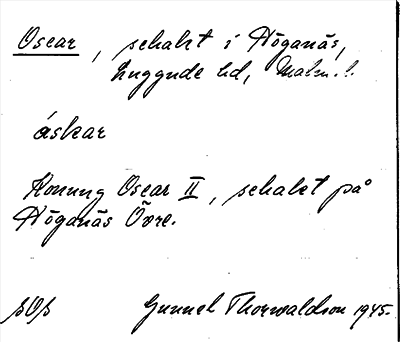 Oscar, schakt i Höganäs,
Luggude hd, Malm. l.
åskar
Konung Oscar II, schakt på
Höganäs Övre.
Gunnel Thorwaldson 1945.